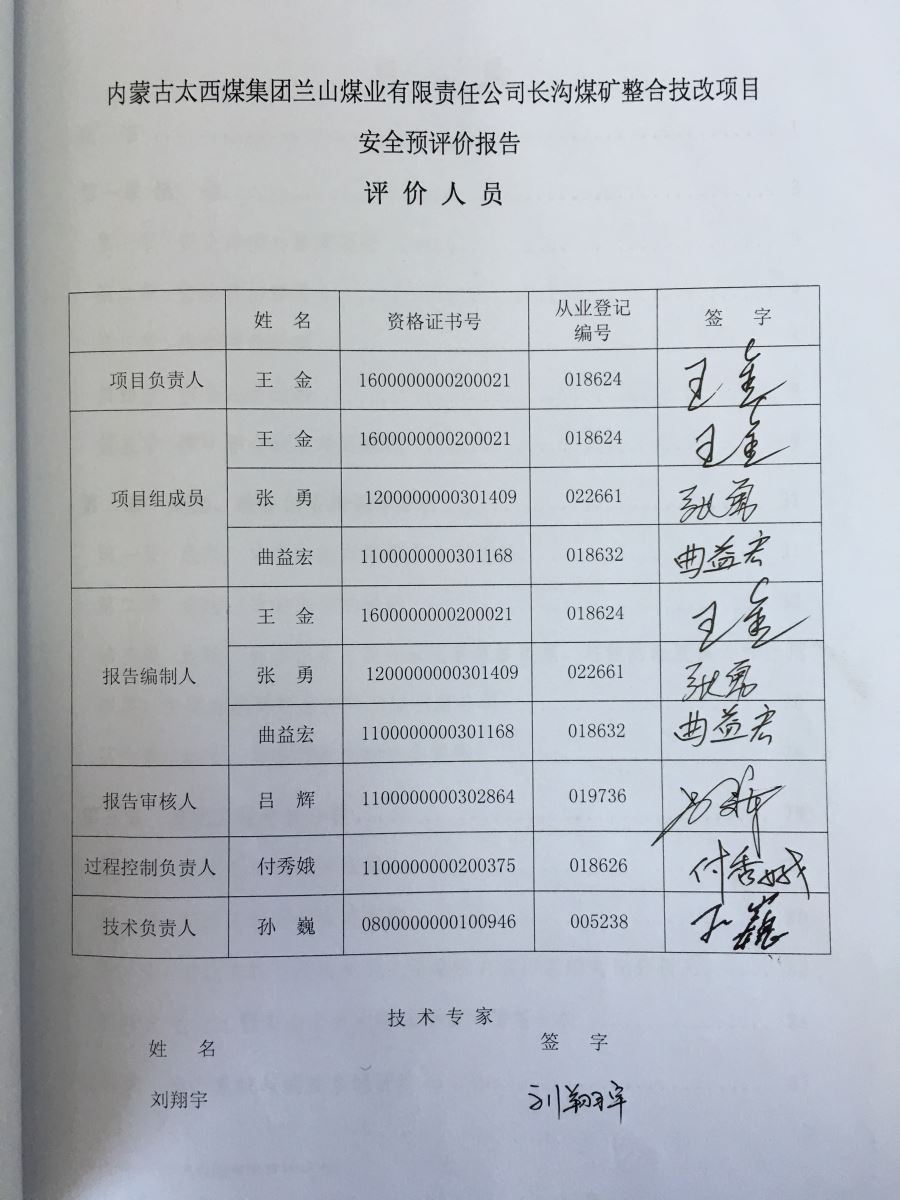 内蒙古太西煤集团兰山煤业有限责任公司长沟煤矿整合技改项目
安全预评价报告
评价人员
姓名 资格证书号 从业登记编号 签字
项目负责人 王金 1600000000200021 018624 王金
项目组成员 王金 1600000000200021 018624 王金
张勇 1200000000301409 022661 张勇
曲益宏 1100000000301168 018632 曲益宏
报告编制人 王金 1600000000200021 018624 王金
张勇 1200000000301409 022661 张勇
曲益宏 1100000000301168 018632 曲益宏
报告审核人 吕辉 1100000000302864 019736 吕辉
过程控制负责人 付秀娥 1100000000200375 018626 付秀娥
技术负责人 孙巍 0800000000100946 005238 孙巍
技术专家
姓名 签字
刘翔宇 刘翔宇